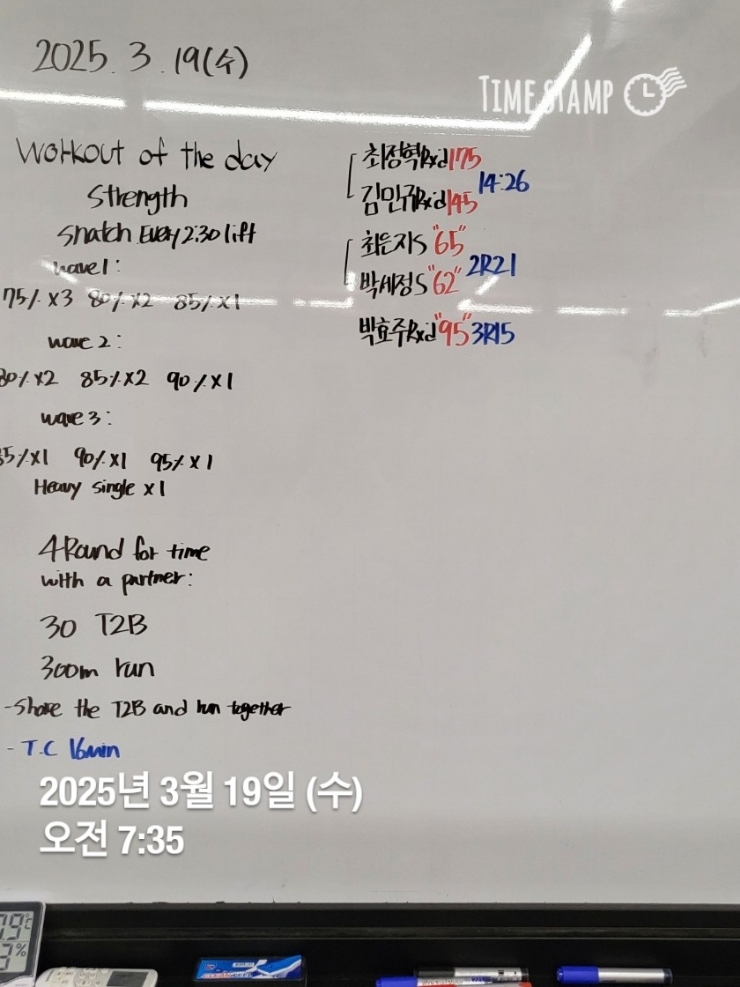 2025. 3. 19(수)
TIME STAMP
Workout of the day
Strength
Snatch Every 2:30 lift
wave 1:
75% x3 80% x2 85% x1
wave 2:
80% x2 85% x2 90% x1
wave 3:
85% x1 90% x1 95% x1
Heavy single x1
4 Round for time
with a partner:
30 T2B
300m run
-share the T2B and run together
- T.C 16min
최정혁 Rxd 175
김민규 Rxd 145
14:26
최은지 S "65"
박세정 S "62"
2R21
박효주 Rxd "95" 3R15
2025년 3월 19일 (수)
오전 7:35